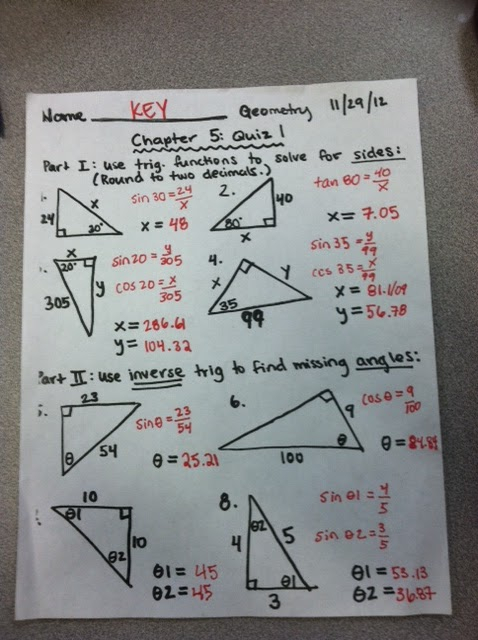 Name KEY Geometry 11/29/12
Chapter 5: Quiz 1
Part I: use trig. functions to solve for sides:
(Round to two decimals.)
24 x 30°
sin 30 = 24/x
x = 48
2.
40 80° x
tan 80 = 40/x
x = 7.05
x 20° 305 y
sin 20 = y/305
cos 20 = x/305
x = 286.61
y = 104.32
4.
x y 35 99
sin 35 = y/99
cos 35 = x/99
x = 81.09
y = 56.78
Part II: use inverse trig to find missing angles:
23 54 θ
sinθ = 23/54
θ = 25.21
6.
9 θ 100
cosθ = 9/100
θ = 84.84
10 θ1 10 θ2
θ1 = 45
θ2 = 45
8.
θ2 4 5 θ1 3
sin θ1 = 4/5
sin θ2 = 3/5
θ1 = 53.13
θ2 = 36.87